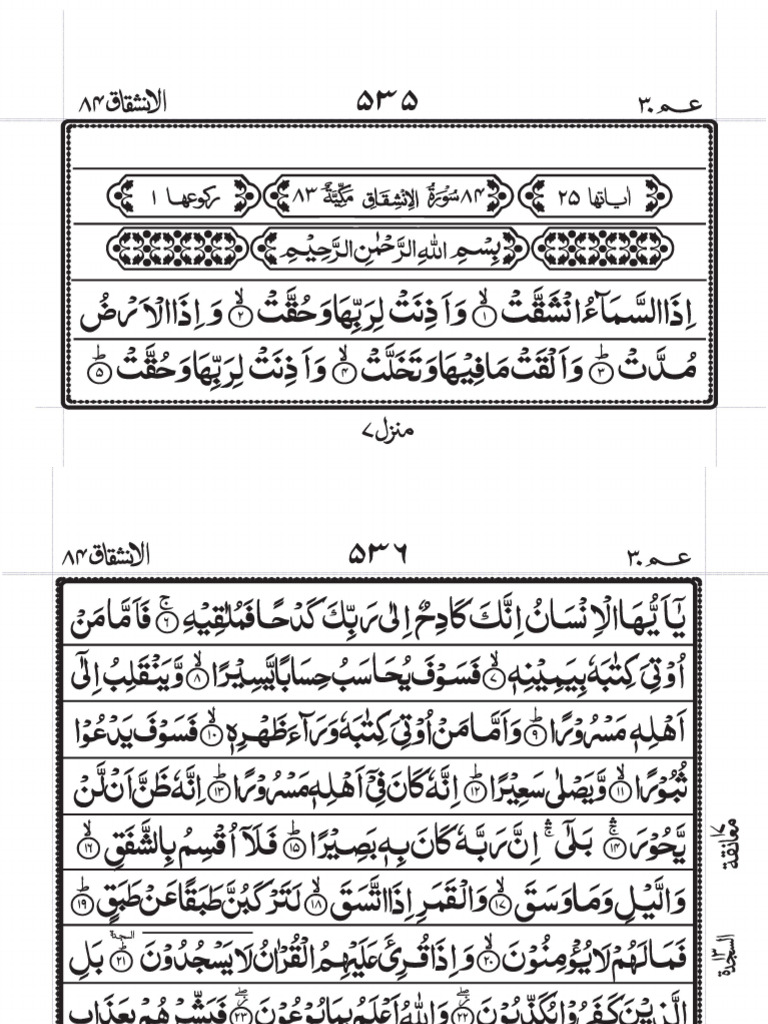 عـم ۳۰ ۵۳۵ الانشقاق ۸۴
اياتها ۲۵ ۸۴ سُوۡرَةُ الۡاِنۡشِقَاقِ مَكِّيَّةٌ ۸۳ ركوعها ۱
بِسۡمِ اللهِ الرَّحۡمٰنِ الرَّحِيۡمِ
اِذَا السَّمَآءُ انْشَقَّتۡۙ‏ ﴿۱﴾ وَاَذِنَتۡ لِرَبِّهَا وَحُقَّتۡۙ‏ ﴿۲﴾ وَاِذَا الۡاَرۡضُ
مُدَّتۡؕ‏ ﴿۳﴾ وَاَلۡقَتۡ مَا فِيۡهَا وَتَخَلَّتۡۙ‏ ﴿۴﴾ وَاَذِنَتۡ لِرَبِّهَا وَحُقَّتۡؕ‏ ﴿۵﴾
منزل ۷
عـم ۳۰ ۵۳۶ الانشقاق ۸۴
يٰۤاَيُّهَا الۡاِنۡسَانُ اِنَّكَ كَادِحٌ اِلٰى رَبِّكَ كَدۡحًا فَمُلٰقِيۡهِۚ‏ ﴿۶﴾ فَاَمَّا مَنۡ
اُوۡتِىَ كِتٰبَهٗ بِيَمِيۡنِهٖۙ‏ ﴿۷﴾ فَسَوۡفَ يُحَاسَبُ حِسَابًا يَّسِيۡرًاۙ‏ ﴿۸﴾ وَّيَنۡقَلِبُ اِلٰٓى
اَهۡلِهٖ مَسۡرُوۡرًاؕ‏ ﴿۹﴾ وَاَمَّا مَنۡ اُوۡتِىَ كِتٰبَهٗ وَرَآءَ ظَهۡرِهٖۙ‏ ﴿۱۰﴾ فَسَوۡفَ يَدۡعُوۡا
ثُبُوۡرًاۙ‏ ﴿۱۱﴾ وَّيَصۡلٰى سَعِيۡرًاؕ‏ ﴿۱۲﴾ اِنَّهٗ كَانَ فِىۡۤ اَهۡلِهٖ مَسۡرُوۡرًاؕ‏ ﴿۱۳﴾ اِنَّهٗ ظَنَّ اَنۡ لَّنۡ
يَّحُوۡرَ ۛۚ‏ ﴿۱۴﴾ بَلٰٓى ۛۚ اِنَّ رَبَّهٗ كَانَ بِهٖ بَصِيۡرًاؕ‏ ﴿۱۵﴾ فَلَاۤ اُقۡسِمُ بِالشَّفَقِۙ‏ ﴿۱۶﴾
معانقة
وَالَّيۡلِ وَمَا وَسَقَۙ‏ ﴿۱۷﴾ وَالۡقَمَرِ اِذَا اتَّسَقَۙ‏ ﴿۱۸﴾ لَتَرۡكَبُنَّ طَبَقًا عَنۡ طَبَقٍؕ‏ ﴿۱۹﴾
فَمَا لَهُمۡ لَا يُؤۡمِنُوۡنَۙ‏ ﴿۲۰﴾ وَاِذَا قُرِئَ عَلَيۡهِمُ الۡقُرۡاٰنُ لَا يَسۡجُدُوۡنَ ؕ‏ ﴿۲۱﴾ بَلِ
السجدة ۱۳
الَّذِيۡنَ كَفَرُوۡا يُكَذِّبُوۡنَ ‏ ﴿۲۲﴾ وَاللّٰهُ اَعۡلَمُ بِمَا يُوۡعُوۡنَ ‏ ﴿۲۳﴾ فَبَشِّرۡهُمۡ بِعَذَابٍ